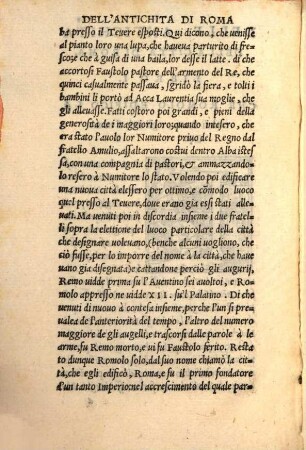 DELL'ANTICHITA DI ROMA
ha presso il Tevere esposti. Qui dicono, che venisse
al pianto loro una lupa, che haueua parturito di fre-
sco; e che à guisa di una baila, lor desse il latte. di che
accortosi Faustolo pastore dell'armento del Re, che
quinci casualmente passaua, sgridò la fiera, e tolti i
bambini li portò ad Acca Laurentia sua moglie, che
gli alleuasse. Fatti costoro poi grandi, e pieni della
generosità de i maggiori loro; quando intesero, che
era stato l'auolo lor Numitore priuo del Regno dal
fratello Amulio, assaltarono costui dentro Alba istes
sa, con una compagnia di pastori, & ammazzando-
lo resero à Numitore lo stato. Volendo poi edificare
una nuoua città elessero per ottimo, e cōmodo luoco
quel presso al Teuere, doue erano gia essi stati alle-
uati. Ma venuti poi in discordia insieme i due fratel-
li sopra la elettione del luoco particolare della città
che desegnare uoleuano, (benche alcuni uogliono, che
ciò fusse, per lo imporre del nome à la città, che haue-
uano gia disegnata) e cattandone perciò gli augurij,
Remo uidde prima su l'Auentino sei auoltoi, e Ro-
molo appresso ne uidde XII. su'l Palatino. Di che
uenuti di nuouo à contesa insieme, perche l'un si pre
ualea de l'anteriorità del tempo, l'altro del numero
maggiore de gli augelli, e trascorsi dalle parole à le
arme, fu Remo morto, e ui fu Faustolo ferito. Resta
to dunque Romolo solo, dal suo nome chiamò la cit-
tà, che egli edificò, Roma, e fu il primo fondatore
d'un tanto Imperio; nel accrescimento del quale par-